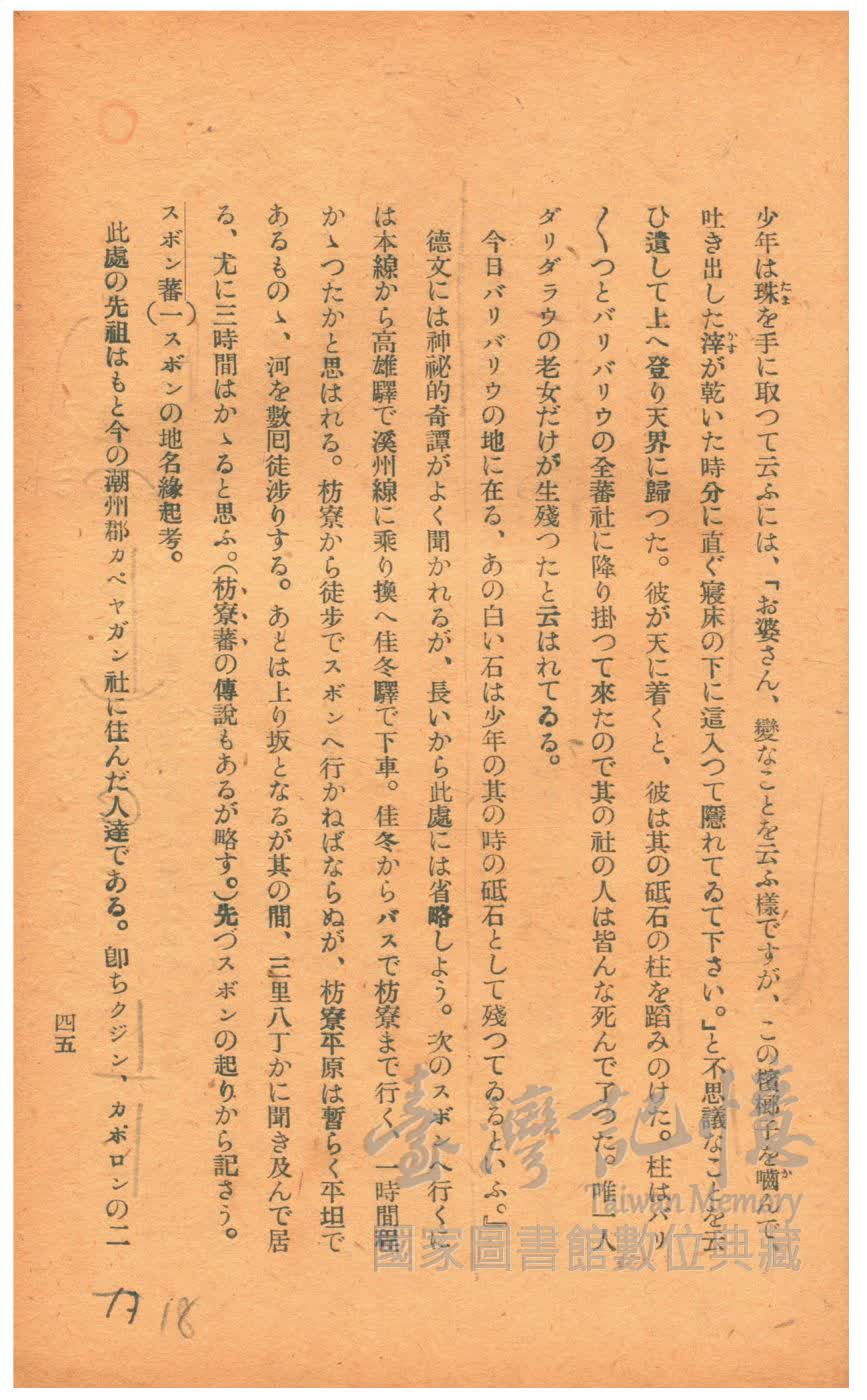 少年は珠を手に取つて云ふには、「お婆さん、變なことを云ふ樣ですが、この檳榔子を嚙んで、
たま
か
吐き出した滓が乾いた時分に直ぐ寢床の下に這入つて隱れてゐて下さい。」と不思議なことを云
かす
ひ遺して上へ登り天界に歸つた。彼が天に着くと、彼は其の砥石の柱を蹈みのけた。柱はバリ
〳〵つとバリバリウの全蕃社に降り掛つて來たので其の社の人は皆んな死んで了つた。唯一人
ダリダラウの老女だけが生殘つたと云はれてゐる。
今日バリバリウの地に在る、あの白い石は少年の其の時の砥石として殘つてゐるといふ。』
德文には神祕的奇譚がよく聞かれるが、長いから此處には省略しよう。次のスボンへ行くに
は本線から高雄驛で溪州線に乘り換へ佳冬驛で下車。佳冬からバスで枋寮まで行く、一時間程
かゝつたかと思はれる。枋寮から徒步でスボンへ行かねばならぬが、枋寮平原は暫らく平坦で
あるものゝ、河を數回徒涉りする。あとは上り坂となるが其の間、三里八丁かに聞き及んで居
る、尤に三時間はかゝると思ふ。(枋寮蕃の傳說もあるが略す。)先づスボンの起りから記さう。
スボン蕃(一)スボンの地名緣起考。
此處の先祖はもと今の潮州郡カペヤガン社に住んだ人達である。卽ちクジン、カポロンの二
四五
18
臺灣記憶
Taiwan Memory
國家圖書館數位典藏